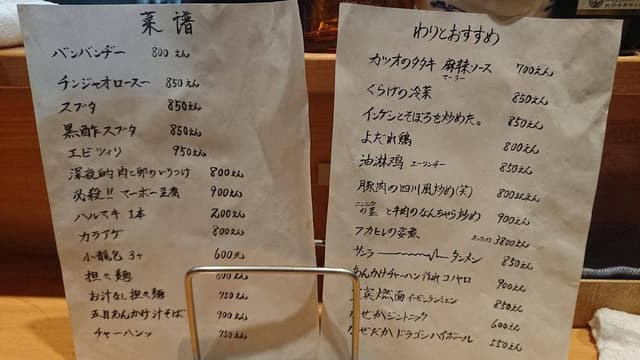 菜譜
バンバンヂー 800えん
チンジャオロースー 850えん
スブタ 850えん
黒酢スブタ 850えん
エビツィリ 950えん
深夜的肉と卵のいりつけ 800えん
必殺!! マーボー豆腐 900えん
ハルマキ 1本 200えん
カラアゲ 800えん
小龍包 3ヶ 600えん
担々麺
お汁なし担々麺 750えん
五目あんかけ汁そば 900えん
チャーハンッ 750えん
わりとおすすめ
カツオのタタキ 麻辣ソース 700えん
マーラー
くらげの冷菜 850えん
インゲンとそぼろを炒めた。 850えん
よだれ鶏 800えん
油淋鸡 ユーリンチー 850えん
豚肉の四川風炒め(笑) 800えん
ニンニク
の茎 と牛肉のなんちゃら炒め 900えん
フカヒレの姿煮 3800えん
サンラータンメン 850えん
あんかけチャーハン 作れコノヤロ 900えん
燃面 イービンランミェン 850えん
なぜかジントニック 600えん
なぜだか ドラゴンハイボール 550えん